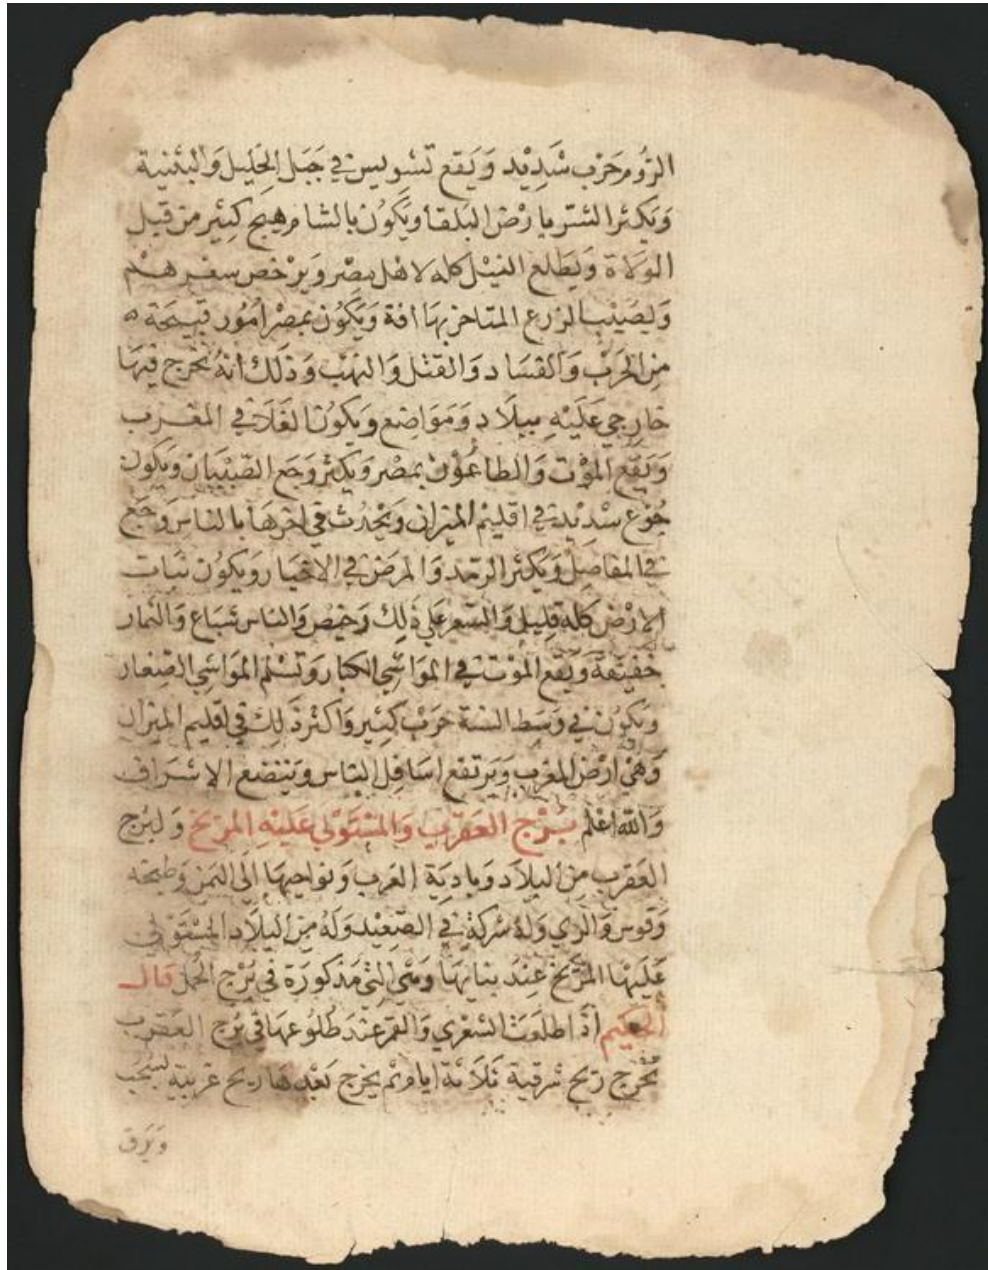 الروم حرب شديد ويقع تشويش في جبل الخليل والبثنية
ويكثر الشر بارض البلقا ويكون بالشام هيج كبير من قبل
الولاة ويطلع النيل كله لاهل مصر ويرخص سعرهم
ويصيب الزرع المتاخر بها افة ويكون بمصر امور قبيحة ه
من الحرب والفساد والقتل والنهب وذلك انه يخرج فيها
خارجي عليه ببلاد ومواضع ويكون الغلا في المغرب
ويقع الموت والطاعون بمصر ويكثر وجع الصبيان ويكون
جوع شديد في اقليم الميزان ويحدث في اخرها بالناس وجع
في المفاصل ويكثر الرمد والمرض في الاخيار ويكون نبات
الارض كله قليل والسعر على ذلك رخيص والناس شباع والثمار
خفيفة ويقع الموت في المواشي الكبار وتسلم المواشي الصغار
ويكون في وسط السنة حرب كثير واكثر ذلك في اقليم الميزان
وهي ارض المغرب ويرتفع اسافل الناس ويتضع الاشراف
والله اعلم برج العقرب والمستولي عليه المريخ ولبرج
العقرب من البلاد وبادية العرب ونواحيها الى اليمن وطنجه
وقوس والري وله شركة في الصعيد وله من البلاد المستولي
عليها المريخ عند بنايها ومتى التي مذكورة في برج الحمل قال
الحكيم اذا طلعت الشعري والقمر عند طلوعها في برج العقرب
تخرج ريح شرقية ثلاثة ايام ثم يخرج بعدها ريح غربية لسحب
وبرق